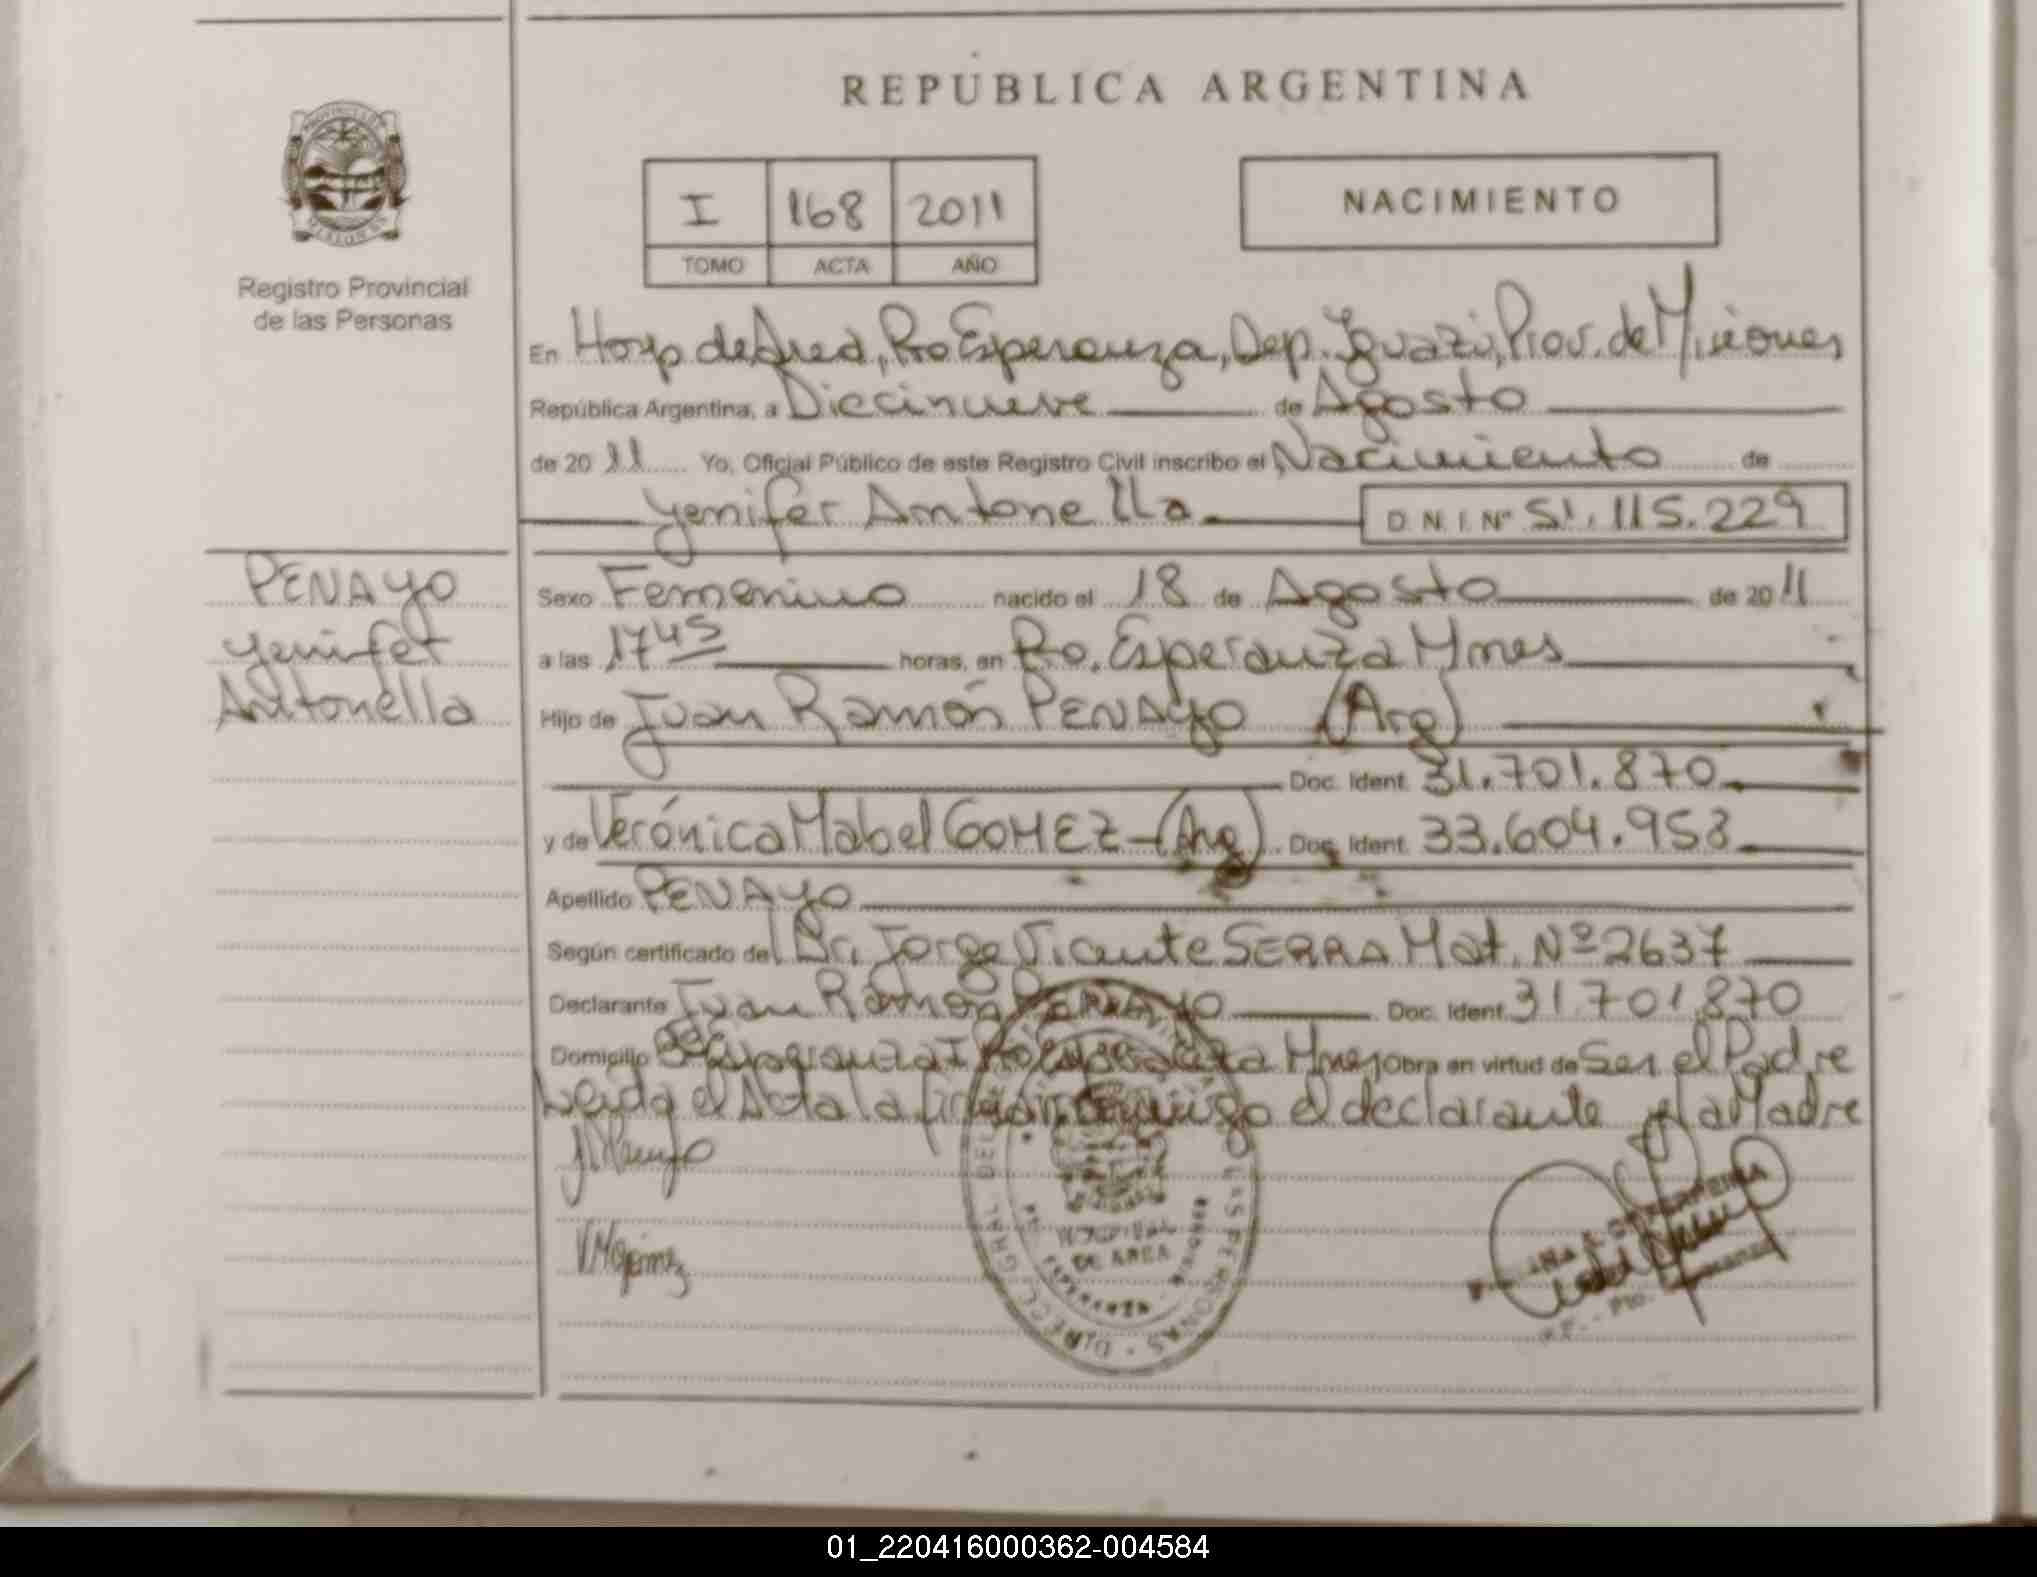 REPÚBLICA ARGENTINA
I 168 2011
TOMO ACTA AÑO
NACIMIENTO
Registro Provincial
de las Personas
En Hosp de Area, Pto Esperanza, Dep. Iguazú, Prov. de Misiones
República Argentina, a Diecinueve de Agosto
de 2011 Yo, Oficial Público de este Registro Civil inscribo el Nacimiento de
Yenifer Antonella D.N.I. Nº 51.115.229
PENAYO
Yenifer
Antonella
Sexo Femenino nacido el 18 de Agosto de 2011
a las 1745 horas, en Pto. Esperanza Mnes
Hijo de Juan Ramón PENAYO (Arg)
Doc. Ident. 31.701.870
y de Verónica Mabel GOMEZ - (Arg) Doc. Ident. 33.604.953
Apellido PENAYO
Según certificado del Dr. Jorge Vicente SERRA Mat. Nº 2637
Declarante Juan Ramón PENAYO Doc. Ident. 31.701.870
Domicilio Esperanza Mnes Obra en virtud de Ser el Padre
Leida el Acta la firman conmigo el declarante y la Madre
HOSPITAL
DE AREA
ESPERANZA
01_220416000362-004584